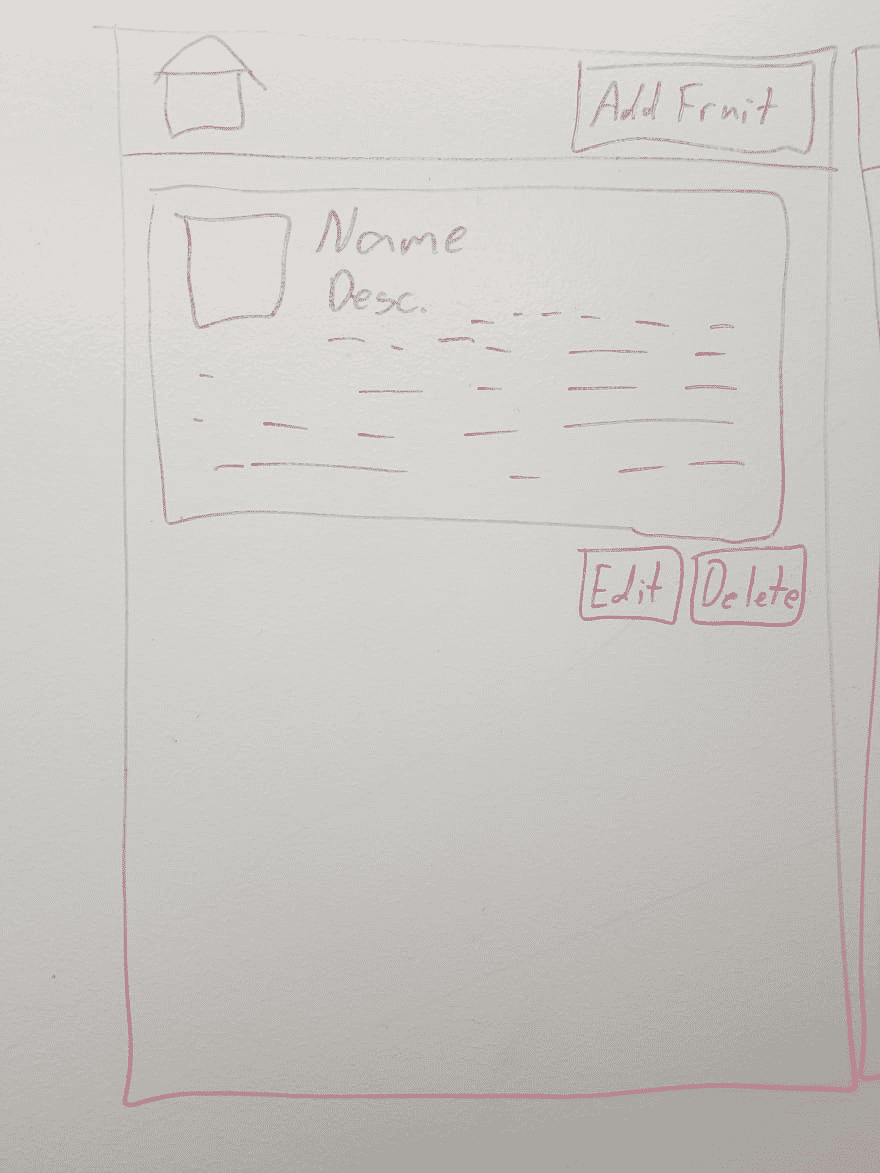 Add Fruit
Name
Desc.
Edit
Delete